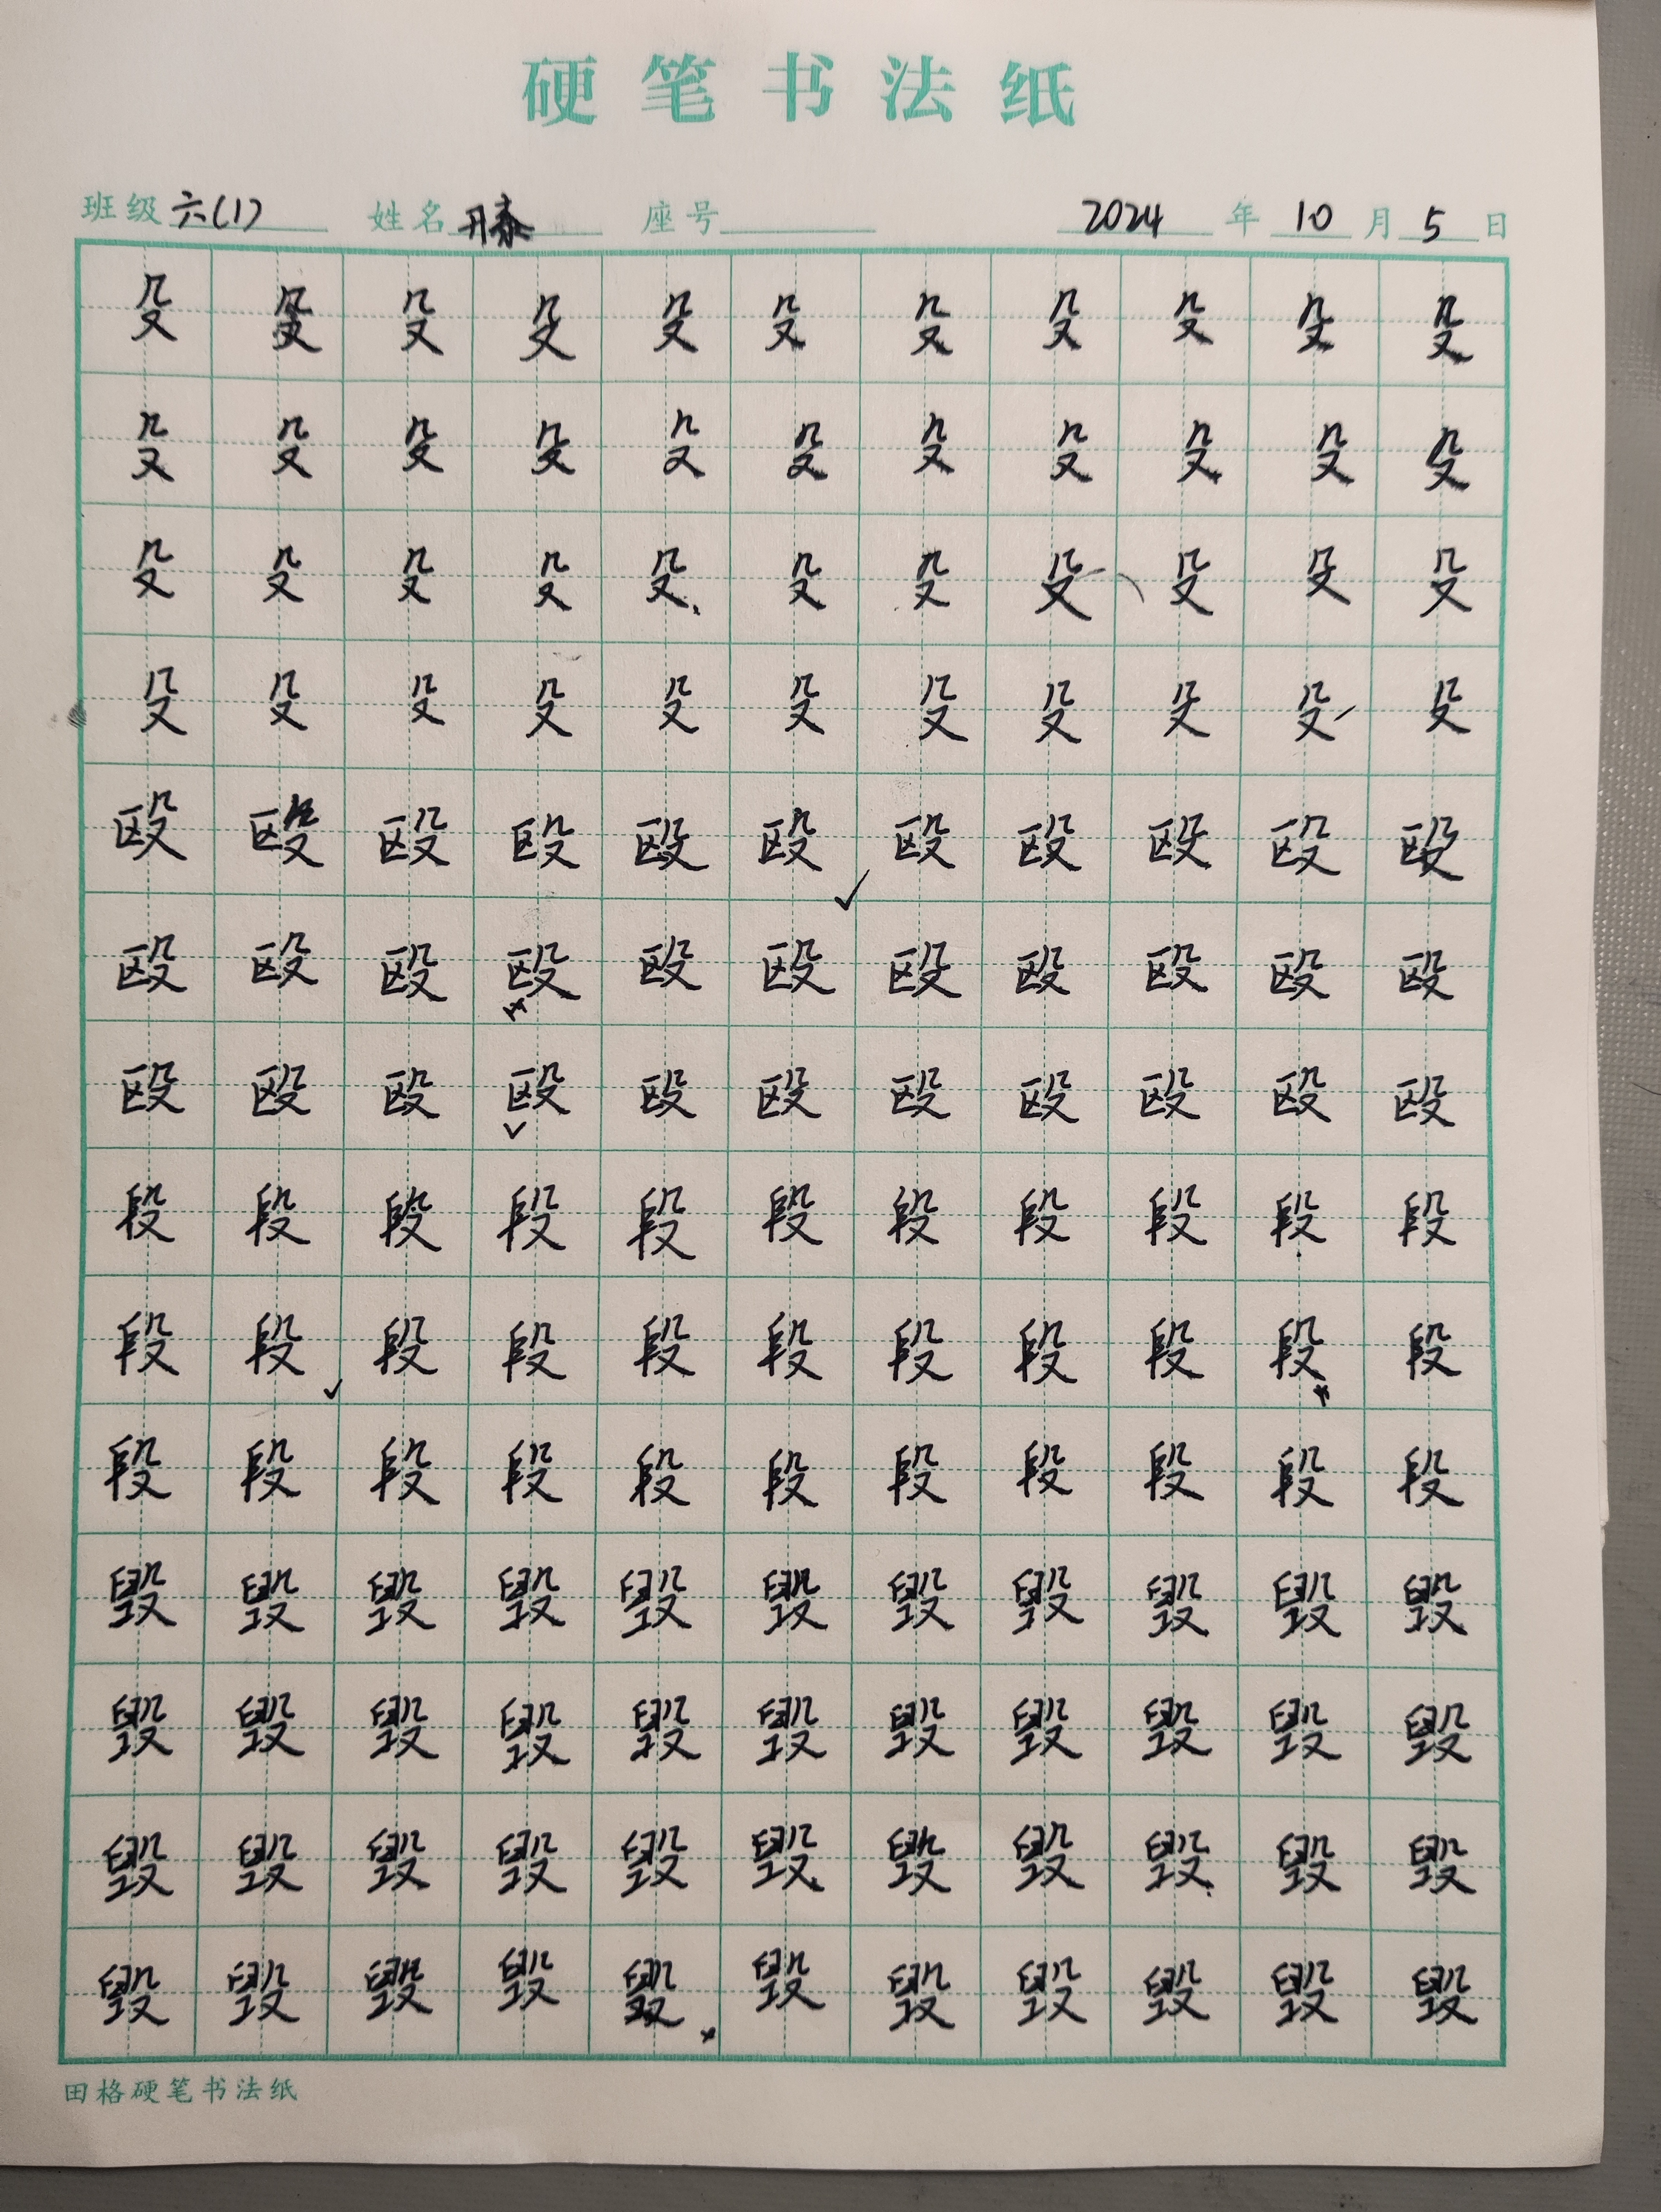 硬笔书法纸
班级 六(1) 姓名 座号 2024 年 10 月 5 日
殳 殳 殳 殳 殳 殳 殳 殳 殳 殳 殳
殳 殳 殳 殳 殳 殳 殳 殳 殳 殳 殳
殳 殳 殳 殳 殳 殳 殳 殳 殳 殳 殳
殳 殳 殳 殳 殳 殳 殳 殳 殳 殳 殳
殴 殴 殴 殴 殴 殴 殴 殴 殴 殴 殴
殴 殴 殴 殴 殴 殴 殴 殴 殴 殴 殴
殴 殴 殴 殴 殴 殴 殴 殴 殴 殴 殴
段 段 段 段 段 段 段 段 段 段 段
段 段 段 段 段 段 段 段 段 段 段
段 段 段 段 段 段 段 段 段 段 段
毁 毁 毁 毁 毁 毁 毁 毁 毁 毁 毁
毁 毁 毁 毁 毁 毁 毁 毁 毁 毁 毁
毁 毁 毁 毁 毁 毁 毁 毁 毁 毁 毁
毁 毁 毁 毁 毁 毁 毁 毁 毁 毁 毁
田格硬笔书法纸